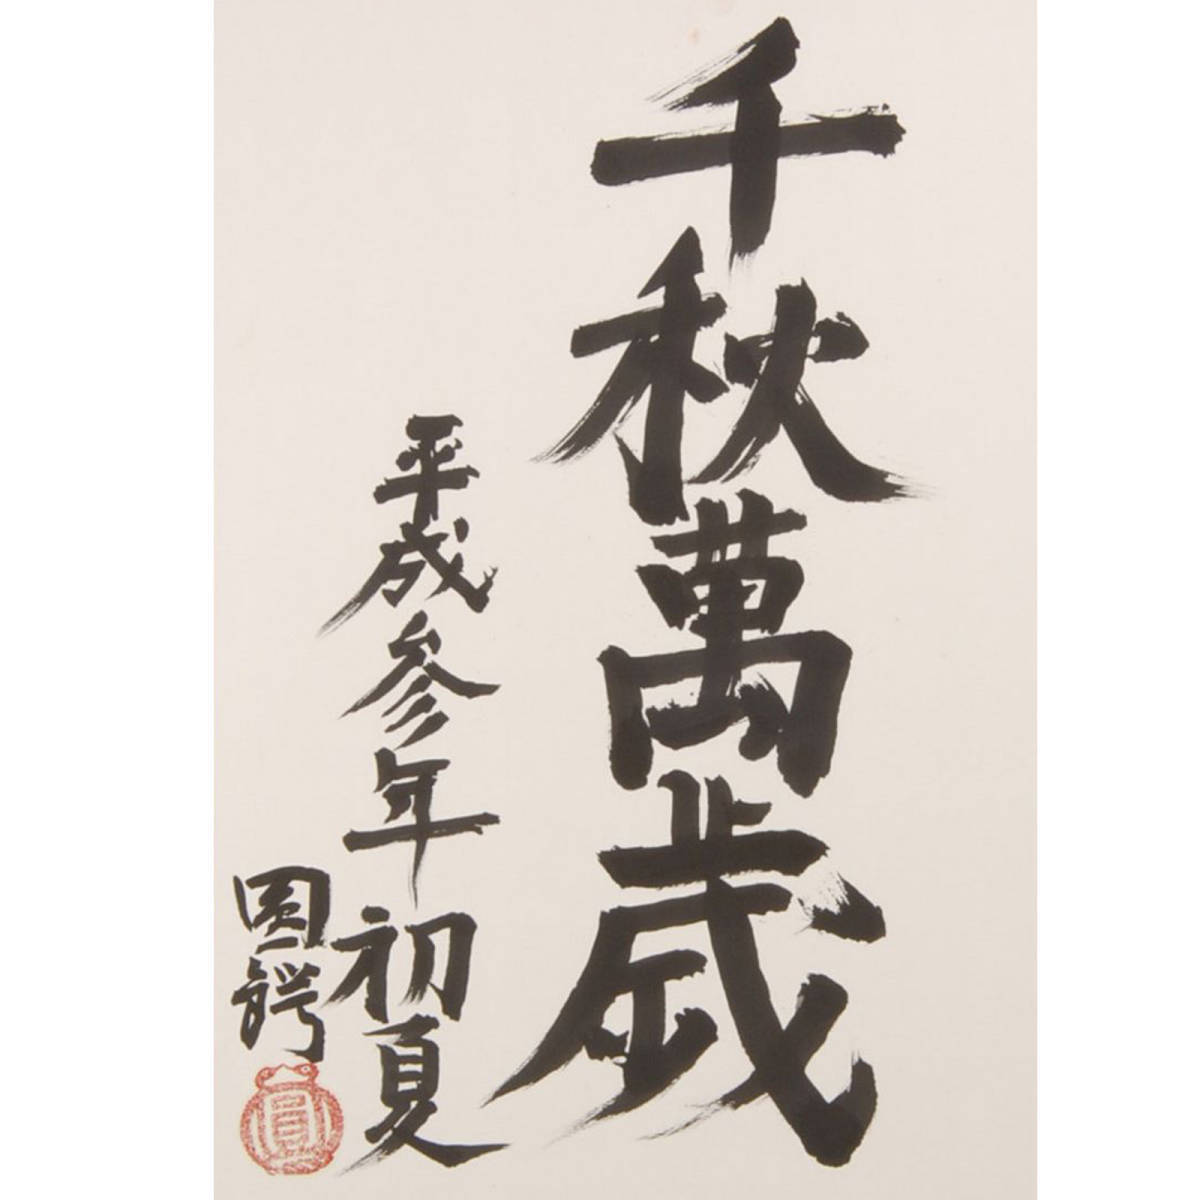 千秋萬歳
平成参年初夏
圓鍔
圓